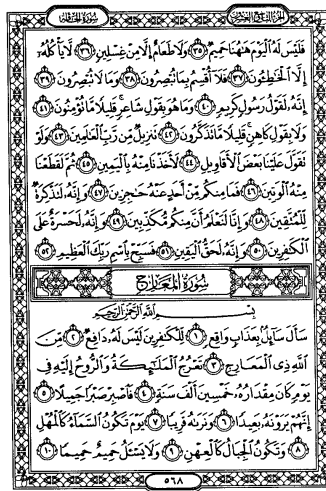 الجزء التاسع والعشرون سورة الحاقة
فَلَيْسَ لَهُ ٱلْيَوْمَ هَٰهُنَا حَمِيمٌ ٣٥ وَلَا طَعَامٌ إِلَّا مِنْ غِسْلِينٍ ٣٦ لَّا يَأْكُلُهُۥٓ
إِلَّا ٱلْخَٰطِـُٔونَ ٣٧ فَلَآ أُقْسِمُ بِمَا تُبْصِرُونَ ٣٨ وَمَا لَا تُبْصِرُونَ ٣٩
إِنَّهُۥ لَقَوْلُ رَسُولٍ كَرِيمٍ ٤٠ وَمَا هُوَ بِقَوْلِ شَاعِرٍ قَلِيلًا مَّا تُؤْمِنُونَ ٤١
وَلَا بِقَوْلِ كَاهِنٍ قَلِيلًا مَّا تَذَكَّرُونَ ٤٢ تَنزِيلٌ مِّن رَّبِّ ٱلْعَٰلَمِينَ ٤٣ وَلَوْ
تَقَوَّلَ عَلَيْنَا بَعْضَ ٱلْأَقَاوِيلِ ٤٤ لَأَخَذْنَا مِنْهُ بِٱلْيَمِينِ ٤٥ ثُمَّ لَقَطَعْنَا
مِنْهُ ٱلْوَتِينَ ٤٦ فَمَا مِنكُم مِّنْ أَحَدٍ عَنْهُ حَٰجِزِينَ ٤٧ وَإِنَّهُۥ لَتَذْكِرَةٌ
لِّلْمُتَّقِينَ ٤٨ وَإِنَّا لَنَعْلَمُ أَنَّ مِنكُم مُّكَذِّبِينَ ٤٩ وَإِنَّهُۥ لَحَسْرَةٌ عَلَى
ٱلْكَٰفِرِينَ ٥٠ وَإِنَّهُۥ لَحَقُّ ٱلْيَقِينِ ٥١ فَسَبِّحْ بِٱسْمِ رَبِّكَ ٱلْعَظِيمِ ٥٢
سورة المعارج
بِسْمِ ٱللَّهِ ٱلرَّحْمَٰنِ ٱلرَّحِيمِ
سَأَلَ سَآئِلٌۢ بِعَذَابٍ وَاقِعٍ ١ لِّلْكَٰفِرِينَ لَيْسَ لَهُۥ دَافِعٌ ٢ مِّنَ
ٱللَّهِ ذِي ٱلْمَعَارِجِ ٣ تَعْرُجُ ٱلْمَلَٰٓئِكَةُ وَٱلرُّوحُ إِلَيْهِ فِي
يَوْمٍ كَانَ مِقْدَارُهُۥ خَمْسِينَ أَلْفَ سَنَةٍ ٤ فَٱصْبِرْ صَبْرًا جَمِيلًا ٥
إِنَّهُمْ يَرَوْنَهُۥ بَعِيدًا ٦ وَنَرَىٰهُ قَرِيبًا ٧ يَوْمَ تَكُونُ ٱلسَّمَآءُ كَٱلْمُهْلِ
٨ وَتَكُونُ ٱلْجِبَالُ كَٱلْعِهْنِ ٩ وَلَا يَسْـَٔلُ حَمِيمٌ حَمِيمًا ١٠
٥٦٨